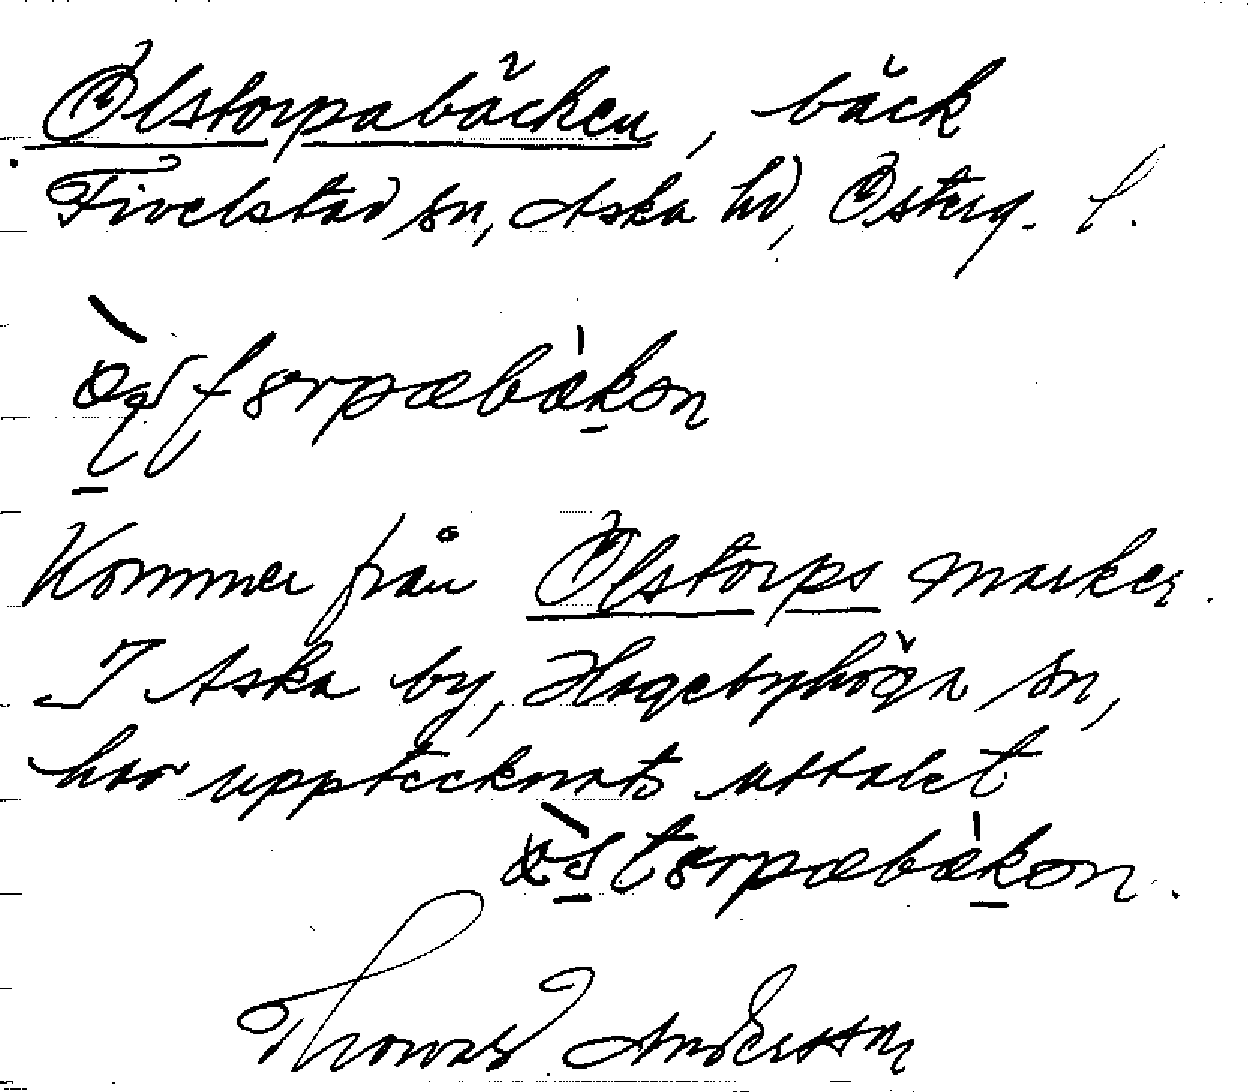 Ölstorpabäcken, bäck
Fivelstad sn, Aska hd, Österg. l.
Kommer från Ölstorps marker.
I Aska by, Hagebyhöga sn,
har upptecknats uttalet
Thomas Andersson